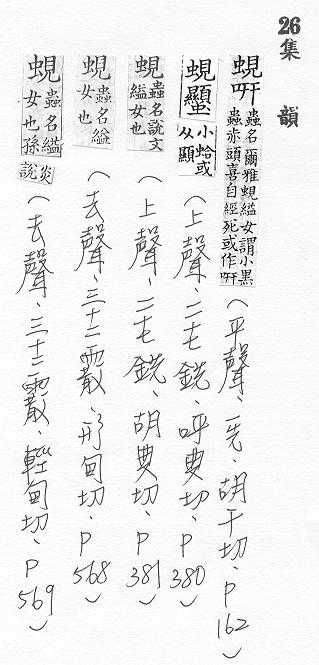 26集韻
蜆蚈蟲名爾雅蜆縊女謂小黑蟲赤頭喜自經死或作蚈(平聲、一先、胡千切、P162)
蜆小蛤或从顯(上聲、二十七銑、呼典切、P380)
蜆蟲名說文縊女也(上聲、二十七銑、胡典切、P381)
蜆蟲名縊女也(去聲、三十二霰、形甸切、P568)
蜆蟲名縊女也孫炎說(去聲、三十二霰、輕甸切、P569)